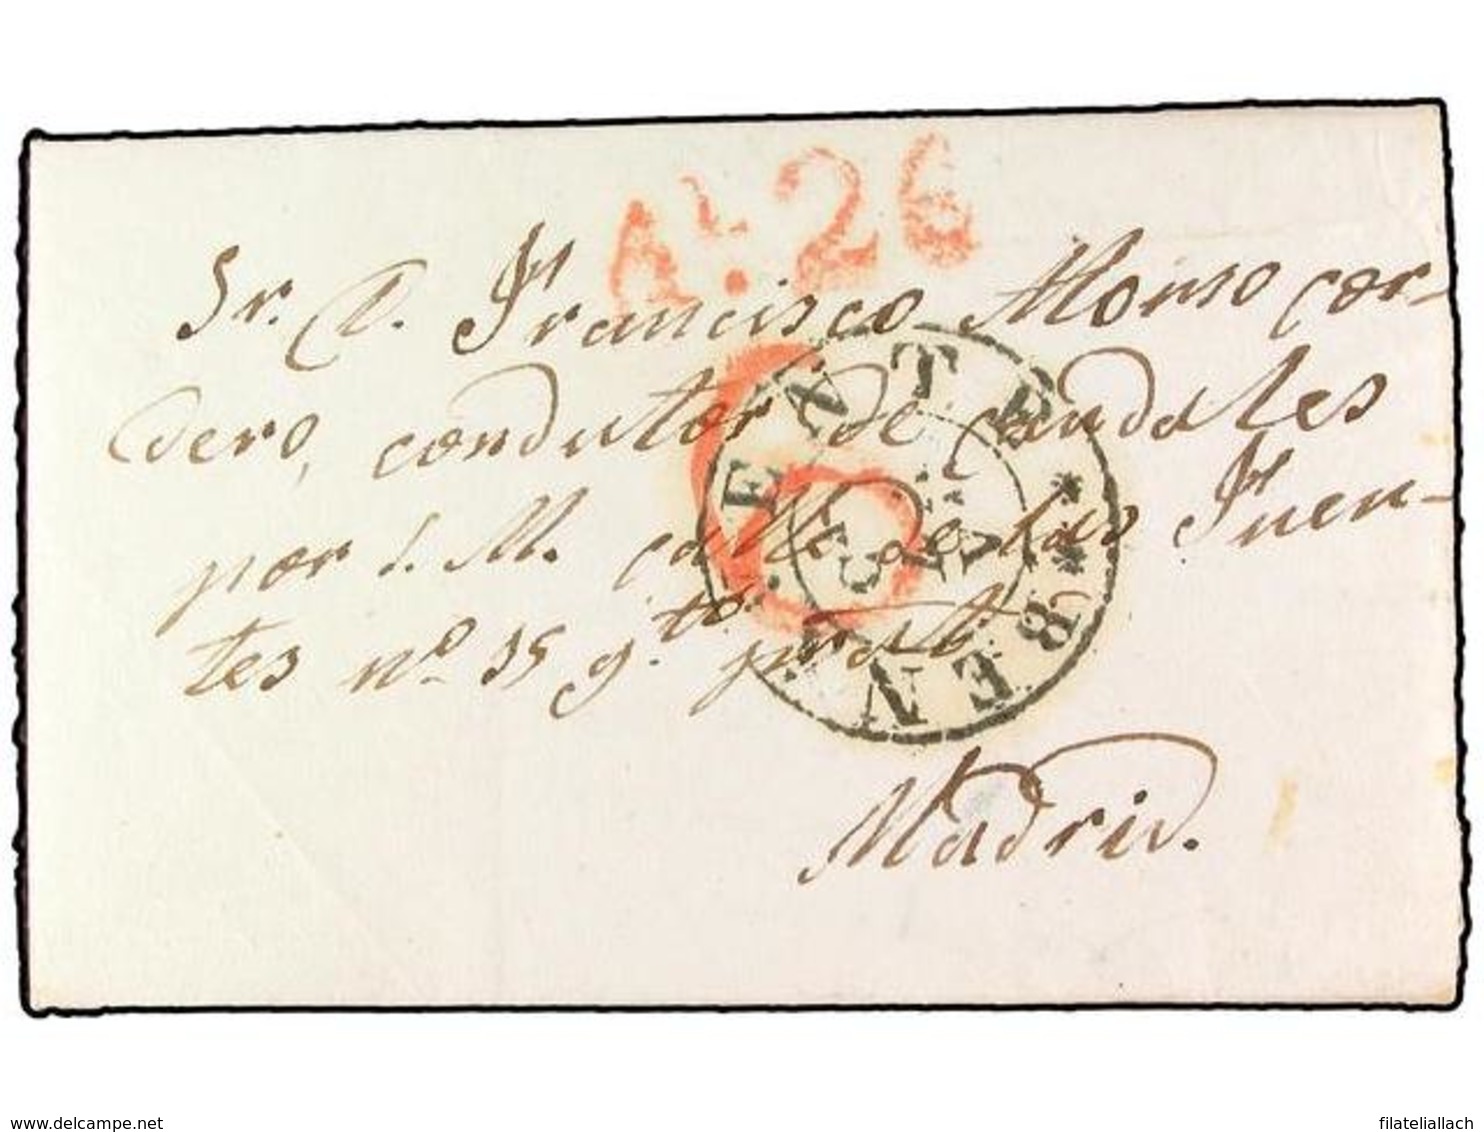 Al. 26
Sr. D. Francisco Alonso Cor-
dero, condutor de caudales
por S. M. calle de las Fuen-
tes nº 35 g.to pral
BENAVENTE
Madrid.
delcampe.net
filateliallach